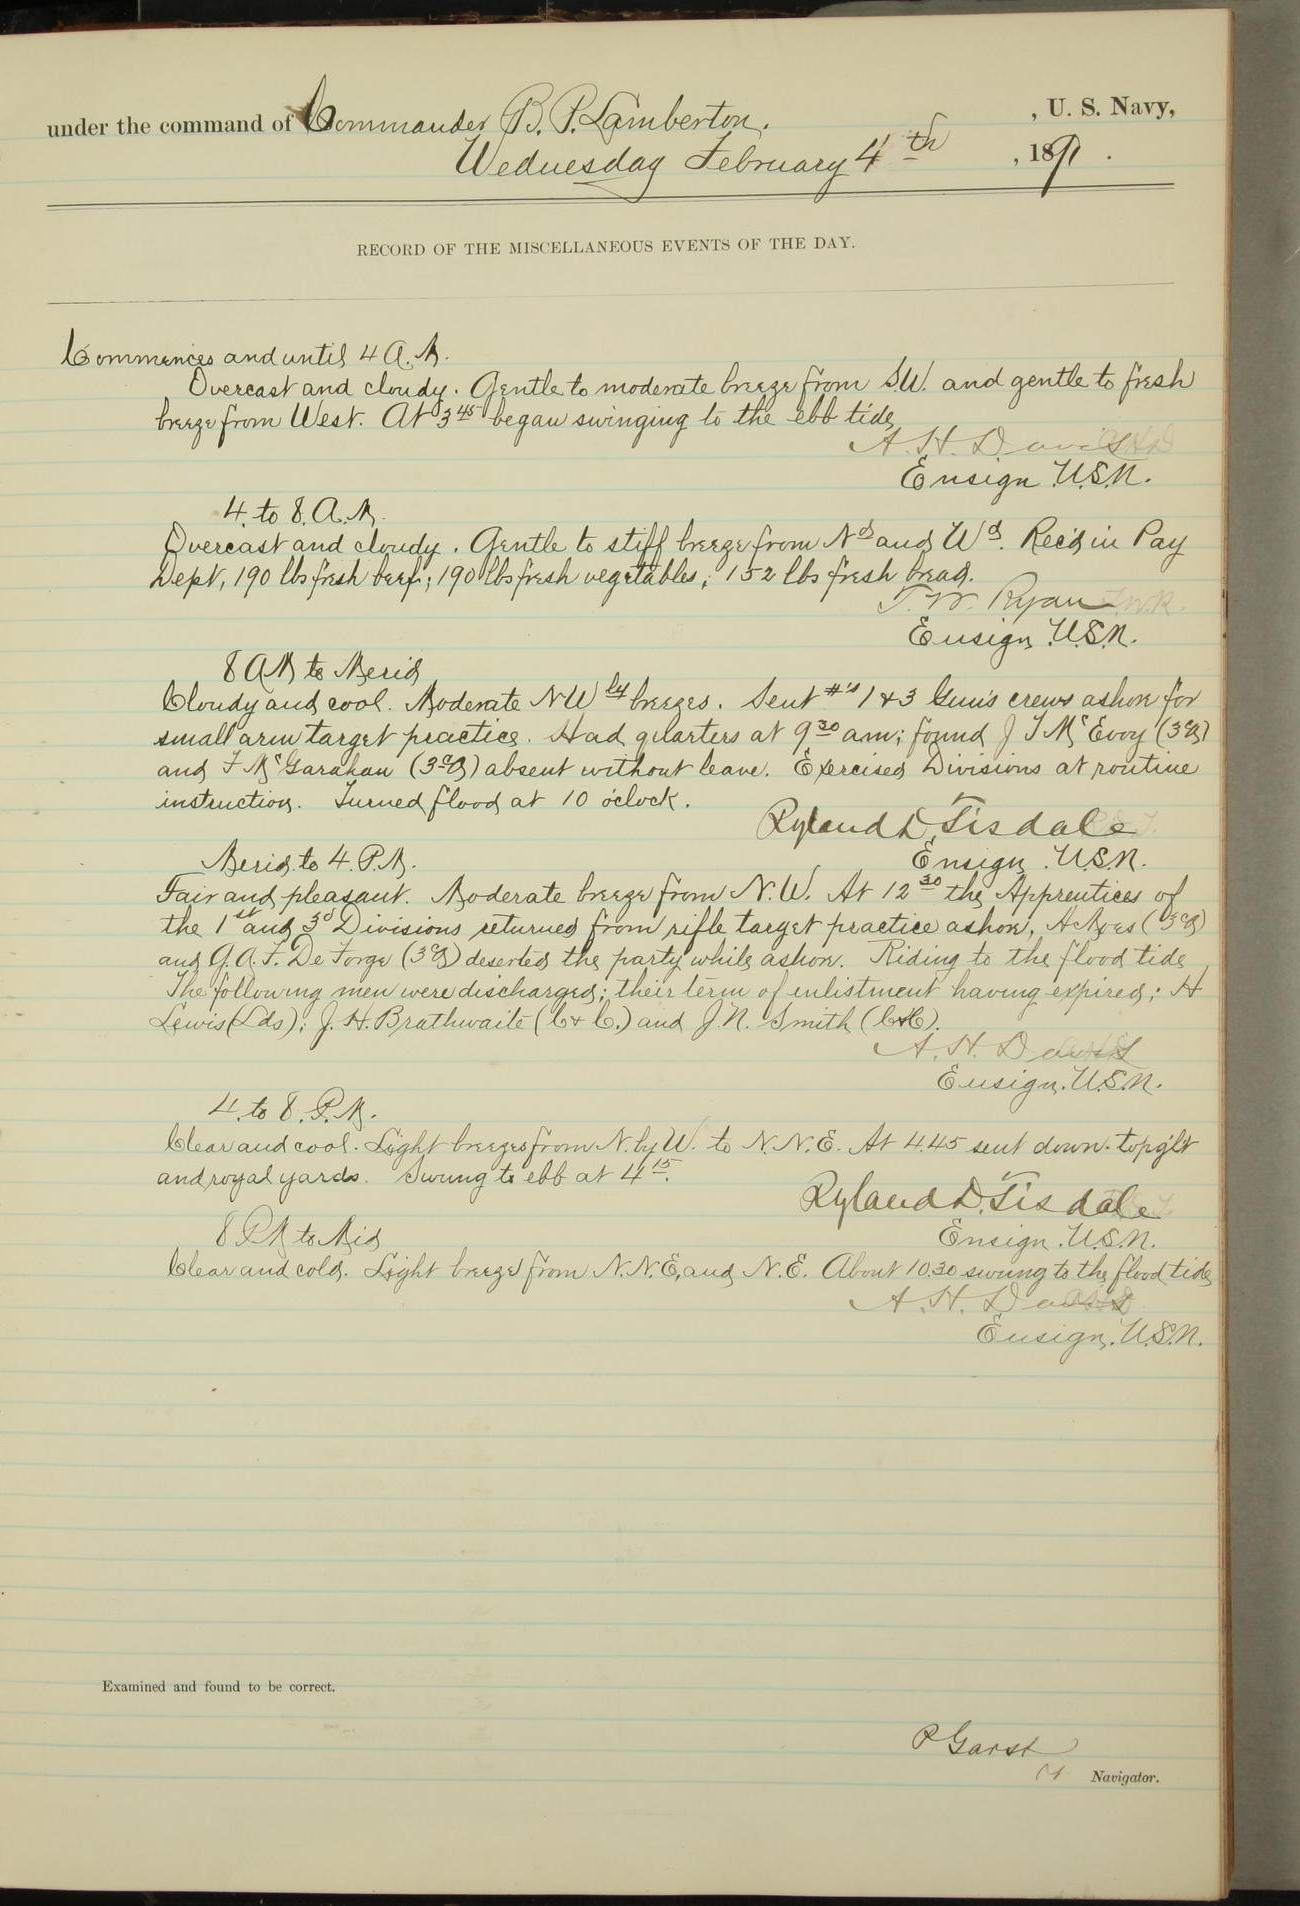 under the command of Commander B. P. Lamberton. , U. S. Navy,
Wednesday February 4th , 1891.
RECORD OF THE MISCELLANEOUS EVENTS OF THE DAY.
Commences and until 4 A. M.
Overcast and cloudy. Gentle to moderate breeze from SW. and gentle to fresh
breeze from West. At 3 45 began swinging to the ebb tide
A. H. Davis
Ensign U.S.N.
4 to 8. A. M.
Overcast and cloudy. Gentle to stiff breeze from Nd and Wd. Rec'd in Pay
Dept, 190 lbs fresh beef; 190 lbs fresh vegetables; 152 lbs fresh bread.
T. W. Ryan
Ensign U.S.N.
8 AM to Merid
Cloudy and cool. Moderate NW ly breezes. Sent #'s 1 & 3 Guns crews ashore for
small arm target practice. Had quarters at 9 30 am; found J T McEvoy (3cB)
and F McGarahan (3cB) absent without leave. Exercised Divisions at routine
instruction. Turned flood at 10 o'clock.
Ryland D. Tisdale
Ensign U.S.N.
Merid. to 4. P. M.
Fair and pleasant. Moderate breeze from N. W. At 12 30 the Apprentices of
the 1st and 3d Divisions returned from rifle target practice ashore, (3cB)
and G. A. F. De Forge (3cB) deserted the party while ashore. Riding to the flood tide
The following men were discharged; their term of enlistment having expired; H
Lewis (Lds); J. H. Brathwaite (C & C.) and J. N. Smith (C & C).
A. H. Davis
Ensign. U.S.N.
4. to 8. P. M.
Clear and cool. Light breezes from N. by W. to N. N. E. At 4.45 sent down topg'lt
and royal yards. Swung to ebb at 4 15.
Ryland D. Tisdale
Ensign. U.S.N.
8 PM to Mid
Clear and cold. Light breeze from N. N. E. and N. E. About 10.30 swung to the flood tide
A. H. Davis
Ensign. U.S.N.
Examined and found to be correct.
P Garst
Navigator.